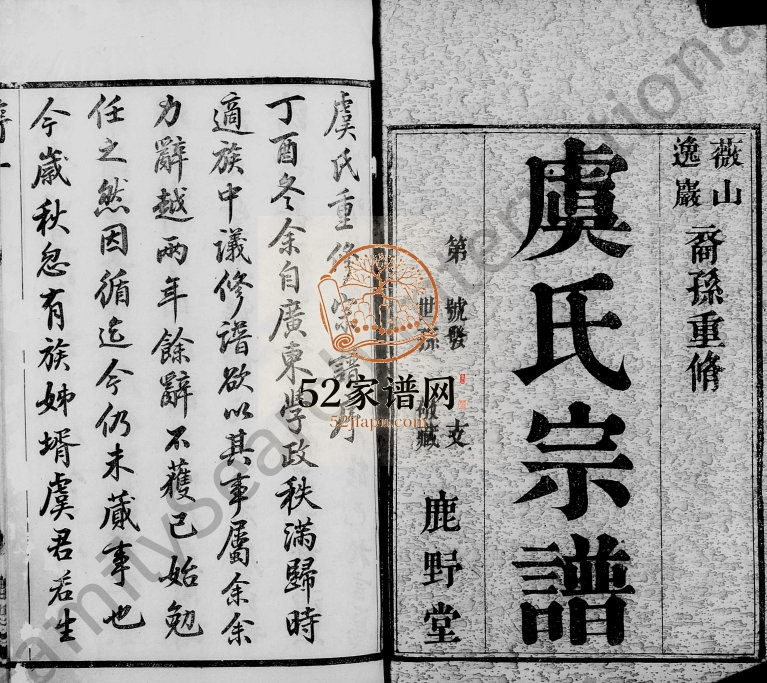 薇山
逸巖
裔孫重脩
虞氏宗譜
第 號發 支
世孫 收藏
鹿野堂
虞氏重修宗譜序
丁酉冬余自廣東學政秩滿歸時
適族中議修譜欲以其事屬余余
力辭越兩年餘辭不獲已始勉
任之然因循迄今仍未蕆事也
今歲秋忽有族姊壻虞君若生
52家谱网
52jiapu.com
FamilySearch International